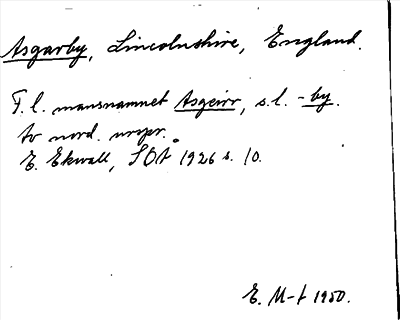 Asgarby, Lincolnshire, England.
F.l. mansnamnet Asgeirr, s.l. -by.
Av nord. urspr.
E. Ekwall, SOÅ 1926 s. 10.
E. M-t 1950.